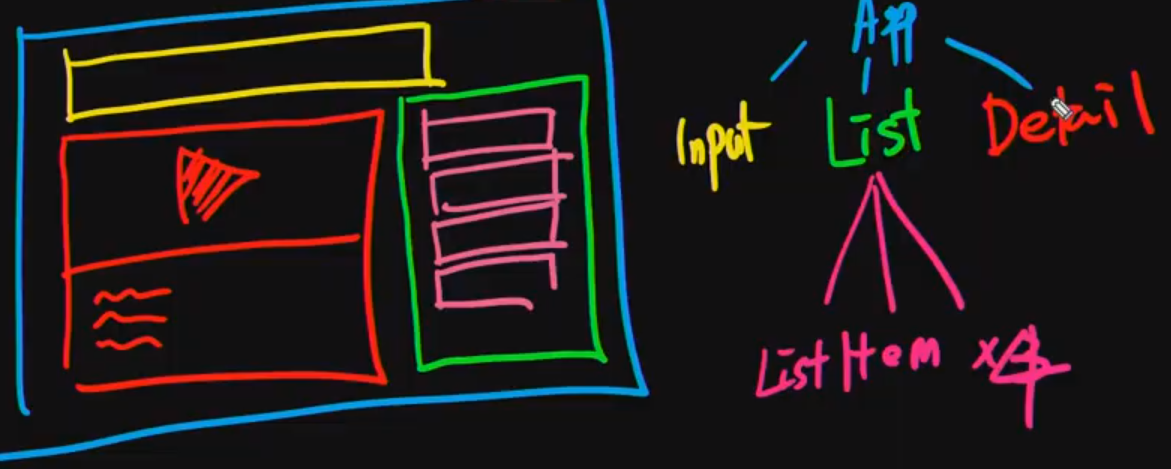 App
Input List Detail
ListItem x4